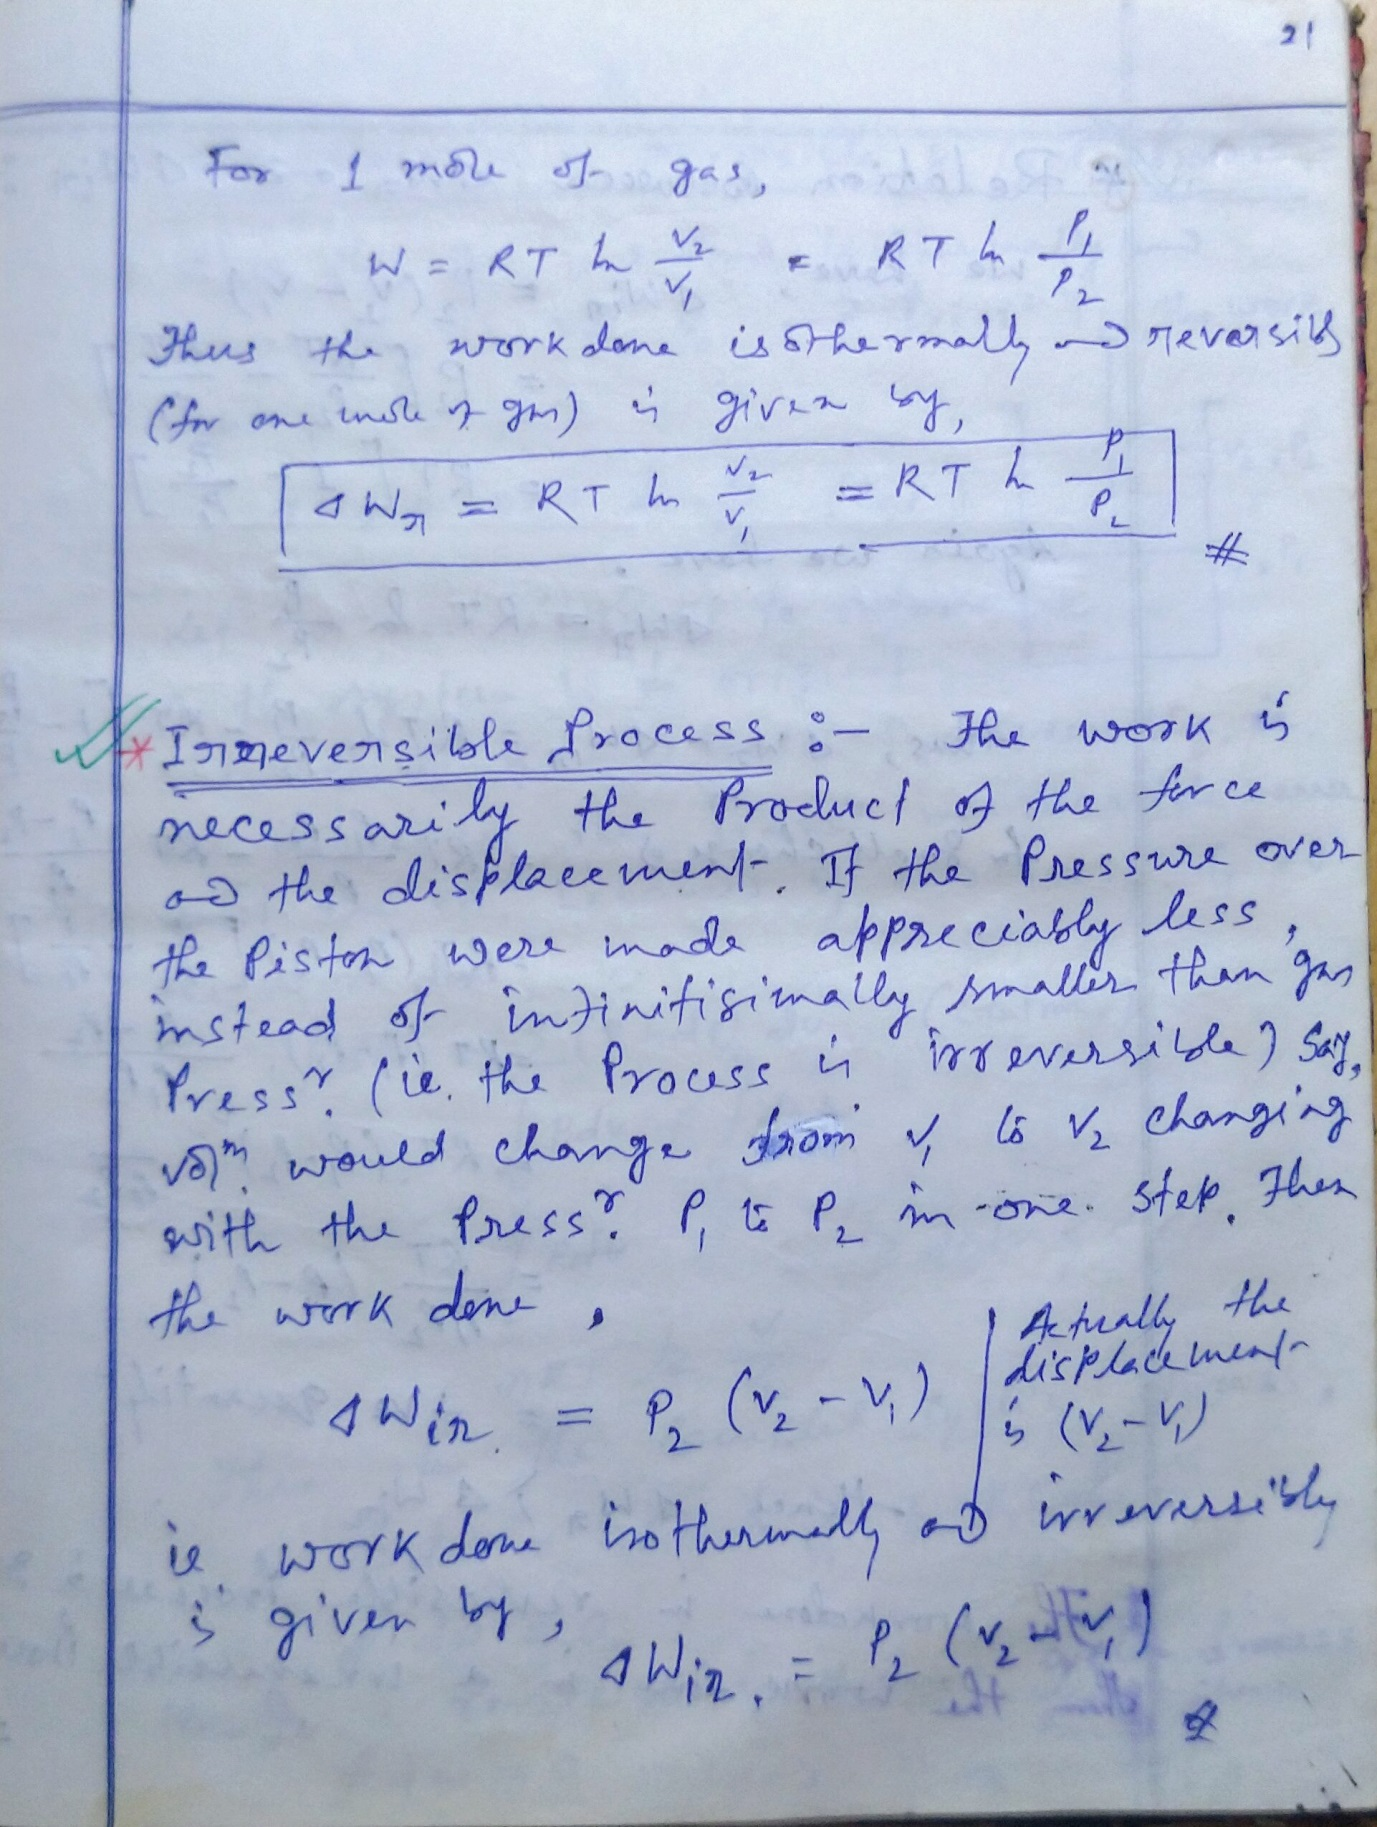 21
For 1 mole of gas,
W = RT ln V₂/V₁ = RT ln P₁/P₂
Thus the work done isothermally and reversibly
(for one mole of gas) is given by,
ΔWr = RT ln V₂/V₁ = RT ln P₁/P₂
#
* Irreversible Process :- The work is
necessarily the Product of the force
and the displacement. If the Pressure over
the Piston were made appreciably less,
instead of infinitisimally smaller than gas
Pressʳ. (ie. the Process is irreversible) Say,
volᵐ. would change from V₁ to V₂ changing
with the Pressʳ. P₁ to P₂ in one step. Then
the work done,
ΔWir. = P₂ (V₂ - V₁)
Actually the
displacement
is (V₂ - V₁)
ie. work done isothermally and irreversibly
is given by,
ΔWir. = P₂ (V₂ - V₁)